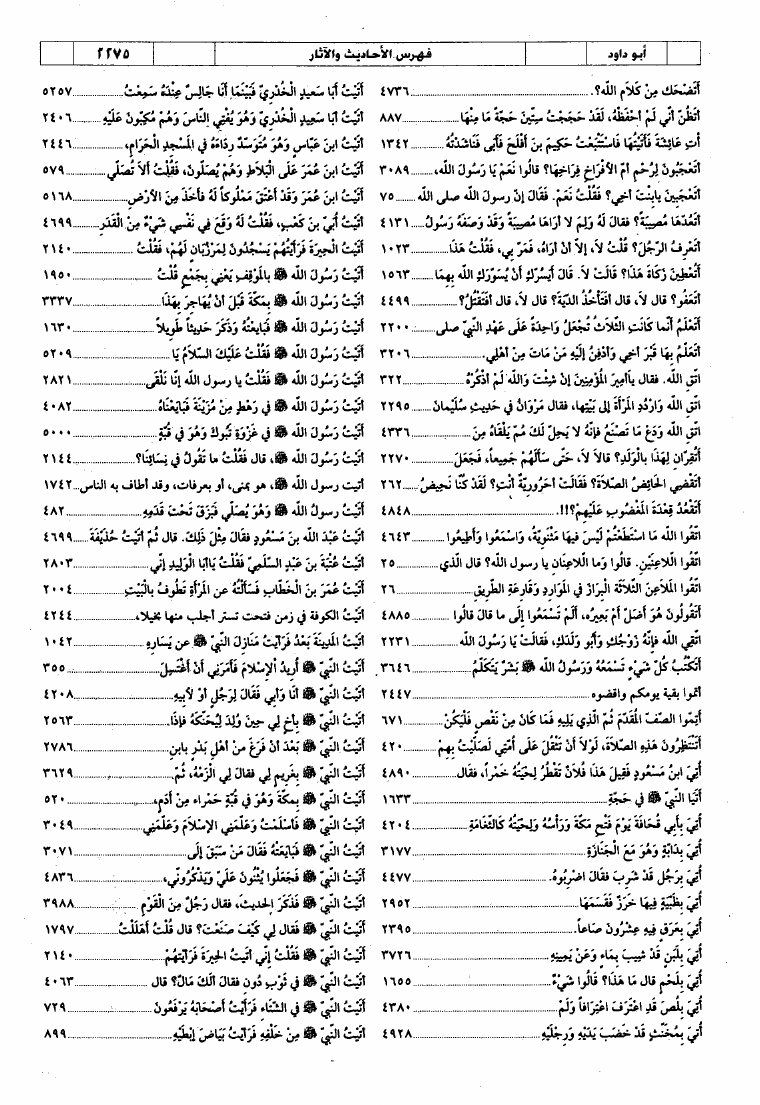 أبو داود
فهرس الأحاديث والآثار
٢٢٧٥
أَتَضْحَكَ مِنْ كَلَامِ اللّه؟. ٤٧٣٦
أَتَظُنّ أنّي لَمْ أحْفَظْهُ، لَقَدْ حَجَجْتُ سِتّينَ حَجّةً مَا مِنْهَا ٨٨٧
أتِ عَائِشَةَ فَأتَيْتُهَا فَاسْتَتْبَعْتُ حَكِيمَ بنَ أفْلَحَ فَأبَى فَنَاشَدْتُهُ ١٣٤٢
أتَعْجَبُونَ لِرُحْمِ أمّ الأفْرَاخِ فِرَاخِهَا؟ قالُوا نَعَمْ يَا رَسُولَ اللّه، ٣٠٨٩
أتَعْجَبِينَ يَابِنْتَ أخِي؟ فَقُلْتُ نَعَمْ. فَقَالَ إنّ رسولَ اللّه صلى اللّه ٧٥
أتَعُدّهَا مُصِيبَةً؟ فقالَ لَهُ وَلِمَ لا أرَاهَا مُصِيبَةً وَقَدْ وَضَعَهُ رَسُولُ ٤١٣١
أتَعْرِفُ الرّجُلَ؟ قُلْتُ لاَ، إلاّ أنْ أرَاهُ، فَمَرّ بِي، فَقُلْتُ هَذَا ١٠٢٣
أتُعْطِينَ زَكَاةَ هَذَا؟ قَالَتْ لاَ. قَالَ أيَسُرّكِ أنْ يُسَوّرَكِ اللّه بِهِمَا ١٥٦٣
أتَعْفُو؟ قال لاَ، قال أفَتَأْخُذُ الدّيَةَ؟ قال لاَ، قال أفَتَقْتُلُ؟ ٤٤٩٩
أتَعْلَمُ أنّما كَانَتِ الثّلاَثُ تُجْعَلُ وَاحِدَةً عَلَى عَهْدِ النّبيّ صلى ٢٢٠٠
أتَعَلّمُ بِهَا قَبْرَ أخِي وَأدْفِنُ إلَيْهِ مَنْ مَاتَ مِنْ أهْلِي. ٣٢٠٦
اتّقِ اللّه. فقال يَاأمِيرَ المُؤْمِنِينَ إنْ شِئْتَ وَاللّه لَمْ أذْكُرْهُ ٣٢٢
اتّقِ اللّه وَارْدُدِ المَرْأةَ إلى بَيْتِهَا، فقال مَرْوَانُ في حَدِيثِ سُلَيْمانَ ٢٢٩٥
اتّقِ اللّه وَدَعْ مَا تَصْنَعُ فإنّهُ لا يَحِلّ لَكَ ثُمّ يَلْقَاهُ مِنَ ٤٣٣٦
أتُقِرّانِ لِهَذَا بالْوَلَدِ؟ قالاَ لاَ، حَتّى سَألَهُمْ جَمِيعاً، فَجَعَلَ ٢٢٧٠
أتَقْضِي الحَائِضُ الصّلاَةَ؟ فَقَالَتْ أحَرُورِيّةٌ أنْتِ؟ لَقَدْ كُنّا نَحِيضُ ٢٦٢
أتَقْعُدُ قِعْدَةَ المَغْضُوبِ عَلَيْهِمْ؟!!. ٤٨٤٨
اتّقُوا اللّه مَا اسْتَطَعْتُمْ لَيْسَ فِيهَا مَثْنَوِيّةٌ، وَاسْمَعُوا وَأطِيعُوا ٤٦٤٣
اتّقُوا اللاّعِنَيْنِ. قالُوا وَما اللاّعِنَانِ يا رسولَ اللّه؟ قال الّذي ٢٥
اتّقُوا المَلاَعِنَ الثّلاَثَةَ الْبرَازَ في المَوَارِدِ وَقَارِعَةِ الطّرِيقِ ٢٦
أتَقُولُونَ هُوَ أضَلّ أمْ بَعِيرُهُ، ألَمْ تَسْمَعُوا إلَى ما قالَ قالُوا ٤٨٨٥
اتّقِي اللّه فإنّهُ زَوْجُكِ وَأبُو وَلَدِكِ، فَقالَتْ يَا رَسُولَ اللّه ٢٢٣١
أتَكْتُبُ كُلّ شَيْءٍ تَسْمَعُهُ وَرَسُولُ اللّه ﷺ بَشَرٌ يَتَكَلّمُ ٣٦٤٦
أتموا بقية يومكم واقضوه ٢٤٤٧
أتِمّوا الصّفّ المُقَدّمَ ثُمّ الّذي يَلِيهِ فَمَا كَانَ مِنْ نَقْصٍ فَلْيَكُنْ ٦٧١
أتَنْتَظِرُونَ هَذِهِ الصّلاَةَ، لَوْلاَ أنْ تَثْقُلَ عَلَى أُمّتِي لَصَلّيْتُ بِهِمْ ٤٢٠
أُتِيَ ابنُ مَسْعُودٍ فَقِيلَ هَذَا فُلاَنٌ تَقْطُرُ لِحْيَتُهُ خَمْراً، فقال ٤٨٩٠
أتَيَا النّبيّ ﷺ في حَجّةِ ١٦٣٣
أُتِيَ بِأبِي قُحَافَةَ يَوْمَ فَتْحِ مَكّةَ وَرَأْسُهُ وَلِحْيَتُهُ كَالثّغَامَةِ ٤٢٠٤
أُتِيَ بِدَابّةٍ وَهُوَ مَعَ الْجَنَازَةِ ٣١٧٧
أُتِيَ بِرَجُلٍ قَدْ شَرِبَ فقالَ اضْرِبُوهُ. ٤٤٧٧
أُتِيَ بِظَبْيَةٍ فِيهَا خَرَزٌ فَقَسَمَهَا ٢٩٥٢
أُتِيَ بعَرَقٍ فِيهِ عِشْرُونَ صَاعاً. ٢٣٩٥
أُتِيَ بِلَبَنٍ قَدْ شِيبَ بِمَاءٍ وَعَنْ يَمِينِهِ ٣٧٢٦
أُتِيَ بِلَحْمٍ قال مَا هَذَا؟ قَالُوا شَيْءٌ ١٦٥٥
أُتِيَ بِلُصّ قَدِ اعْتَرَفَ اعْتِرَافاً وَلَمْ ٤٣٨٠
أُتِيَ بِمُخَنّثٍ قَدْ خَضَبَ يَدَيْهِ وَرِجْلَيْهِ ٤٩٢٨
أتَيْتُ أبَا سَعِيدٍ الْخُدْرِيّ فَبَيْنَمَا أنَا جَالِسٌ عِنْدَهُ سَمِعْتُ ٥٢٥٧
أتَيْتُ أبَا سَعِيدٍ الْخُدْرِيّ وَهُوَ يُفْتِي النّاسَ وَهُمْ مُكِبّونَ عَلَيْهِ ٢٤٠٦
أتَيْتُ ابنَ عَبّاسٍ وَهُوَ مُتَوَسّدٌ رِدَاءَهُ في المَسْجِدِ الْحَرَامِ، ٢٤٤٦
أتَيْتُ ابنَ عُمَرَ عَلَى الْبَلاَطِ وَهُمْ يُصَلّونَ، فَقُلْتُ ألاَ تُصَلّي ٥٧٩
أتَيْتُ ابنَ عُمَرَ وَقَدْ أعْتَقَ مَمْلُوكاً لَهُ فأخَذَ مِنَ الأرْضِ ٥١٦٨
أتَيْتُ أُبَيّ بنَ كَعْبٍ، فَقُلْتُ لَهُ وَقَعَ فِي نَفْسِي شَيْءٌ مِنَ الْقَدَرِ ٤٦٩٩
أتَيْتُ الْحِيرَةَ فَرَأيْتُهُمْ يَسْجُدُونَ لِمَرْزُبَانٍ لَهُمْ، فَقُلْتُ ٢١٤٠
أتَيْتُ رَسُولَ اللّه ﷺ بالمَوْقِفِ يَعْنِي بِجَمْعٍ قُلْتُ ١٩٥٠
أتَيْتُ رَسُولَ اللّه ﷺ بِمَكّةَ قَبْلَ أنْ يُهَاجِرَ بِهَذَا ٣٣٣٧
أتَيْتُ رَسُولَ اللّه ﷺ فَبَايَعْتُهُ وَذَكَرَ حَدِيثاً طَوِيلاً ١٦٣٠
أتَيْتُ رَسُولَ اللّه ﷺ فَقُلْتُ عَلَيْكَ السّلاَمُ يَا ٥٢٠٩
أتَيْتُ رَسُولَ اللّه ﷺ فَقُلْتُ يا رسولَ اللّه إنّا نَلْقَى ٢٨٢١
أتَيْتُ رَسُولَ اللّه ﷺ في رَهْطٍ مِنْ مُزَيْنَةَ فَبَايَعْنَاهُ ٤٠٨٢
أتَيْتُ رَسُولَ اللّه ﷺ في غَزْوَةِ تَبُوكَ وَهُوَ في قُبّةٍ ٥٠٠٠
أتَيْتُ رَسُولَ اللّه ﷺ، قال فَقُلْتُ مَا تَقُولُ في نِسَائِنَا؟ ٢١٤٤
أتيت رسول اللّه ﷺ، هو بمنى، أو بعرفات، وقد أطاف به الناس ١٧٤٢
أتَيْتُ رسولُ اللّه ﷺ وَهُوَ يُصَلّي فَبَزَقَ تَحْتَ قَدَمِهِ ٤٨٢
أتَيْتُ عَبْدَ اللّه بنَ مَسْعُودٍ فقَالَ مِثْلَ ذَلِكَ. قال ثُمّ أتَيْتُ حُذَيْفَةَ ٤٦٩٩
أتَيْتُ عُتْبَةَ بنَ عَبْدٍ السّلَمِيّ فَقُلْتُ يَاأبَا الْوَلِيدِ إنّي ٢٨٠٣
أتَيْتُ عُمَرَ بنَ الْخَطّابِ فَسَألْتُهُ عن المَرْأةِ تَطُوفُ بالْبَيْتِ ٢٠٠٤
أتيْتُ الكوفة في زمن فتحت تستر أجلب منها بغالا، ٤٢٤٤
أتَيْتُ المَدِينَةَ بَعْدُ فَرَأيْتُ مَنَازِلَ النّبيّ ﷺ عن يَسَارِهِ ١٠٤٢
أتَيْتُ النّبيّ ﷺ أُرِيدُ الإسْلاَمَ فَأمَرَنِي أنْ أغْتَسِلَ ٣٥٥
أتَيْتُ النّبيّ ﷺ أنَا وَأبي فَقَالَ لِرَجُلٍ أوْ لأبِيهِ ٤٢٠٨
أتَيْتُ النّبيّ ﷺ بِأخٍ لِي حِينَ وُلِدَ لِيُحَنّكَهُ فإذَا، ٢٥٦٣
أتَيْتُ النّبيّ ﷺ بَعْدَ أنْ فَرَغَ مِنْ أهْلِ بَدْرٍ بابنِ ٢٧٨٦
أتَيْتُ النّبيّ ﷺ بِغَرِيمٍ لِي فقالَ لِي الْزَمْهُ، ثُمّ ٣٦٢٩
أتَيْتُ النّبيّ ﷺ بِمَكّةَ وَهُوَ في قُبّةٍ حَمْرَاءَ مِنْ أدَمٍ، ٥٢٠
أتَيْتُ النّبيّ ﷺ فَأسْلَمْتُ وَعَلّمَنِي الإسْلاَمَ وَعَلّمَنِي ٣٠٤٩
أتَيْتُ النّبيّ ﷺ فَبَايَعْتُهُ فقَالَ مَنْ سَبَقَ إلَى ٣٠٧١
أتَيْتُ النّبيّ ﷺ فَجَعَلُوا يُثْنُونَ عَلَيّ وَيَذْكُرُونِي، ٤٨٣٦
أتَيْتُ النّبيّ ﷺ فَذَكَرَ الْحَدِيثَ، فقال رَجُلٌ مِنَ الْقَوْمِ ٣٩٨٨
أتَيْتُ النّبيّ ﷺ فقَالَ لِي كَيْفَ صَنَعْتَ؟ قال قُلْتُ أهْلَلْتُ ١٧٩٧
أتَيْتُ النّبيّ ﷺ فَقُلْتُ إنّي أتَيْتُ الْحِيرَةَ فَرَأيْتُهُمْ ٢١٤٠
أتَيْتُ النّبيّ ﷺ في ثَوْبٍ دُونٍ فقالَ ألَكَ مَالٌ؟ قال ٤٠٦٣
أتَيْتُ النّبيّ ﷺ في الشّتَاءِ فَرَأيْتُ أصْحَابَهُ يَرْفَعُونَ ٧٢٩
أتَيْتُ النّبيّ ﷺ مِنْ خَلْفِهِ فَرَأيْتُ بَيَاضَ إبْطَيْهِ ٨٩٩